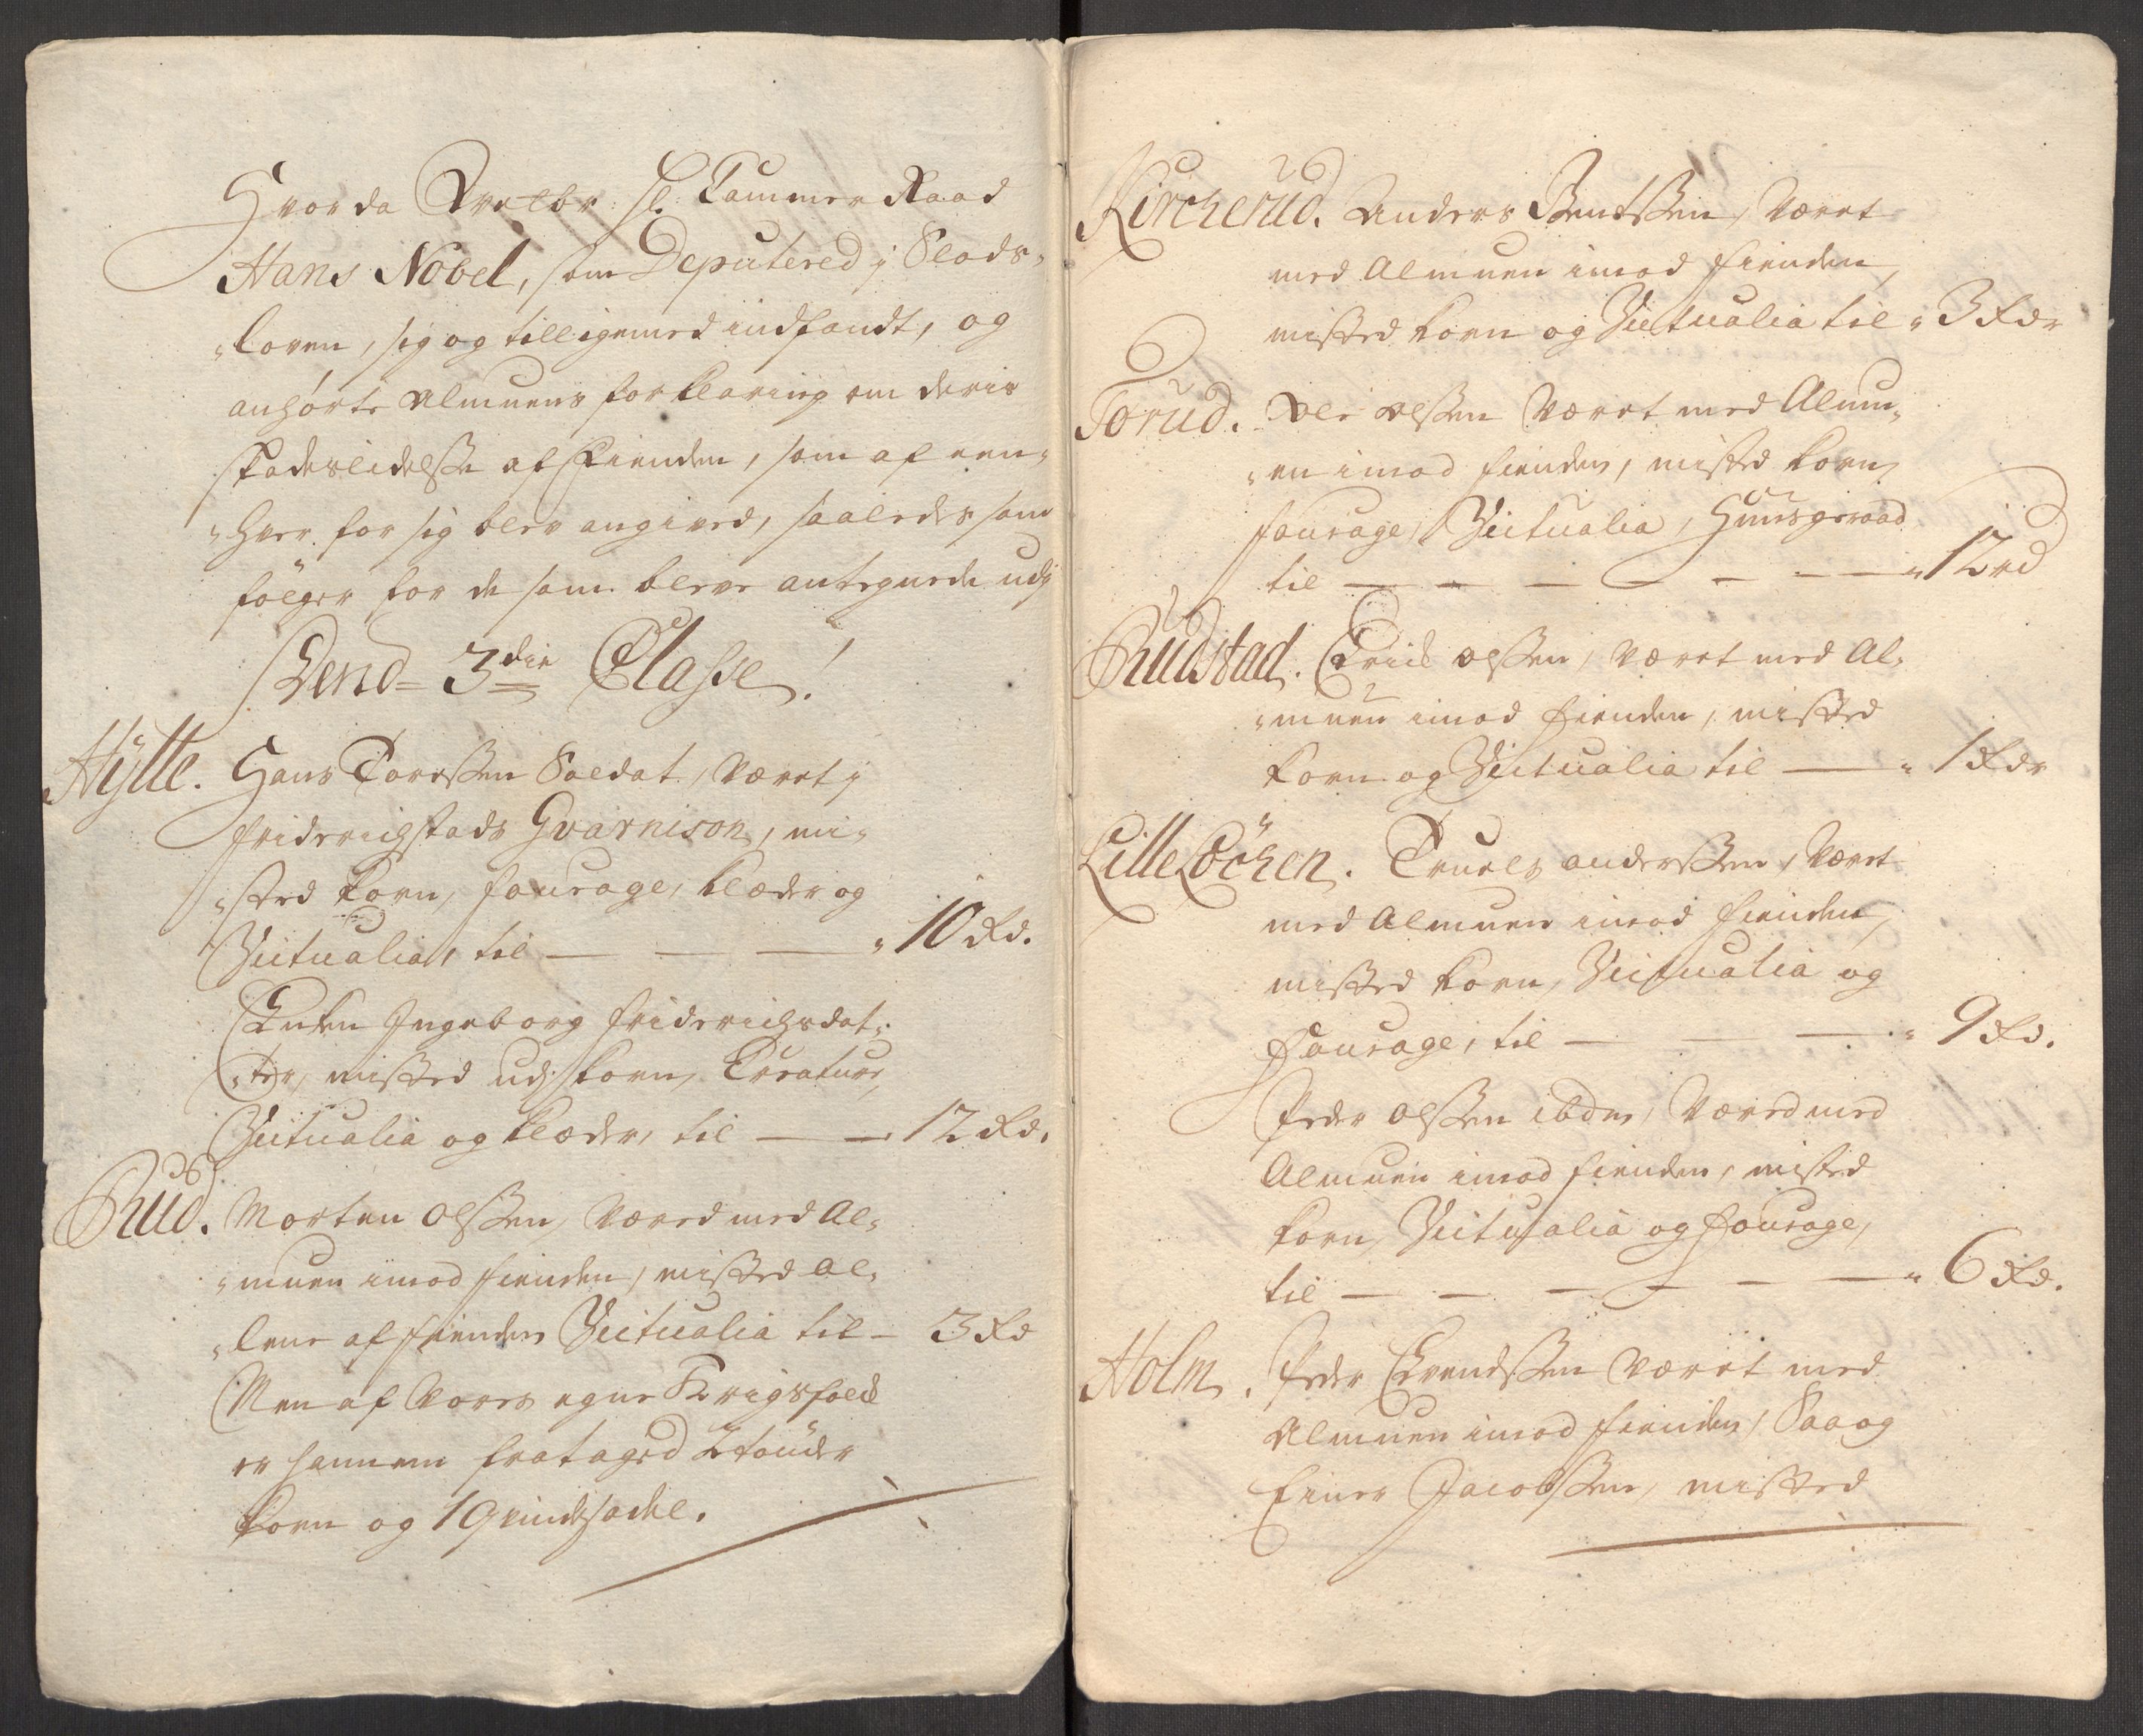 Hvor da Velbr: hl: Cammer Raad
Hans Nobel, som Deputered j Slods-
loven, sig og tilligemed indfandt, og
anhørte Almuens forklaring om deris
skadeslidelsse af Fienden, som af een-
hver for sig blev angived, saaledes som
følger for de som bleve antegnede udj
Dend 3die Classe!
Hÿtte. Hans Toressen Soldat, Været j
friderichstads Gvarnison, mi-
sted korn, fourage, klæder og
Victualia, til — — — 10 Rd.
Enken Ingeborg friderichsdat-
ter, misted udj korn, Creature,
Victualia og klæder, til — — 12 Rd.
Rud. Morten Olssen, Væred med Al-
muen imod fienden, misted al-
lene af fienden Victualia til — 3 Rd
Men af Vores egne Krigsfolck
er hannem frataged 2 tønder
korn og 1 Qvindsadel.
Kircherud. Anders Bentssen, Været
med Almuen imod fienden,
misted korn og Victualia til 3 Rdr
Torud. Ole Olssen Været med Almu-
en imod fienden, misted korn,
fourage, Victualia, Huusgeraad
til — — — — — — 12 rd
Rudstad. Erick Olssen, Været med Al-
muen imod fienden, misted
korn og Victualia til — 1 Rdr
Lille Löchen. Truels anderssen, Været
med Almuen imod fienden,
misted korn, Victualia og
Fourage, til — — — 9 Rd.
Peder Olssen ibdm, Væred med
Almuen imod fienden, misted
korn, Victualia og fourage,
til — — — — — — 6 Rd.
Holm. Peder Evendssen Været med
Almuen imod fienden, Saa og
Einer Jacobssen, misted